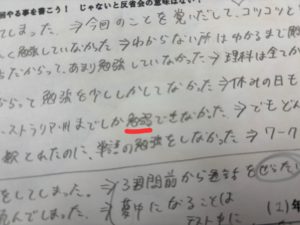 やる事を書こう! じゃないと反省会の意味はない!
てしまった。⇒今回のことを覚いだして、コツコツと
しく勉強していなかった ⇒わからない所はわかるまで勉
だからって、あまり勉強していなかった ⇒理科は全てか
からって勉強を少ししかしてなかった ⇒休みの日も
ストラリア州までしか勉強できなかった。⇒でもど
教てれたのに、の勉強をしなかった ⇒ワーク
をしてしまった。 ⇒3週間前から
んでしまった。 ⇒夢中になることは
テスト中に
(2)年